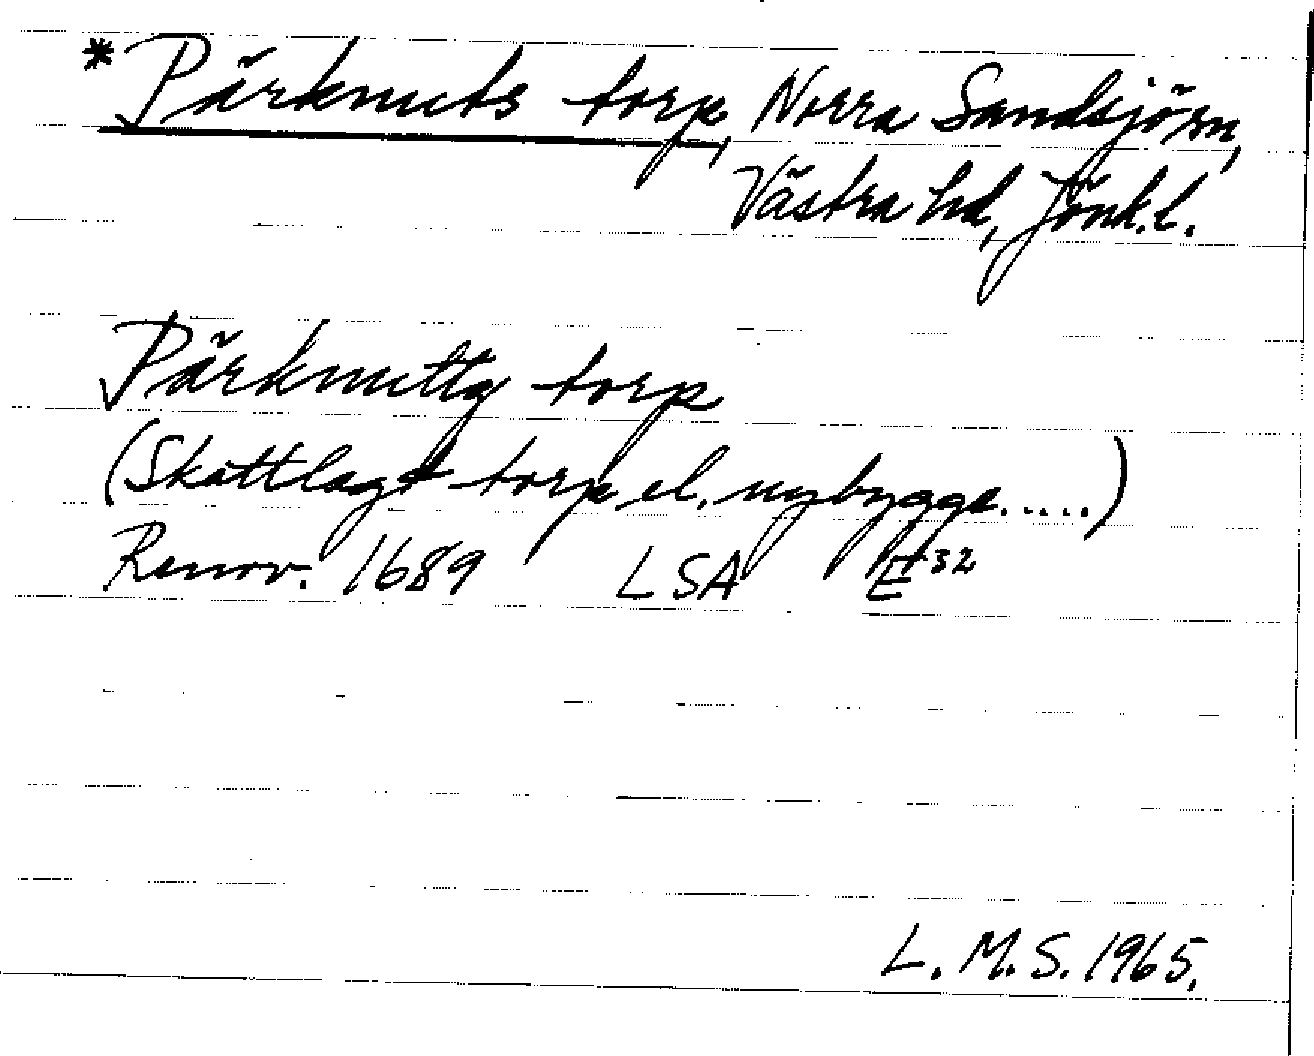 * Pärknuts torp, Norra Sandsjö sn,
Västra hd, Jönk.l.
Pärknuttz torp
(Skattlagt torp el. nybygge.....)
Renov. 1689 LSA E 32
L. M. S. 1965.